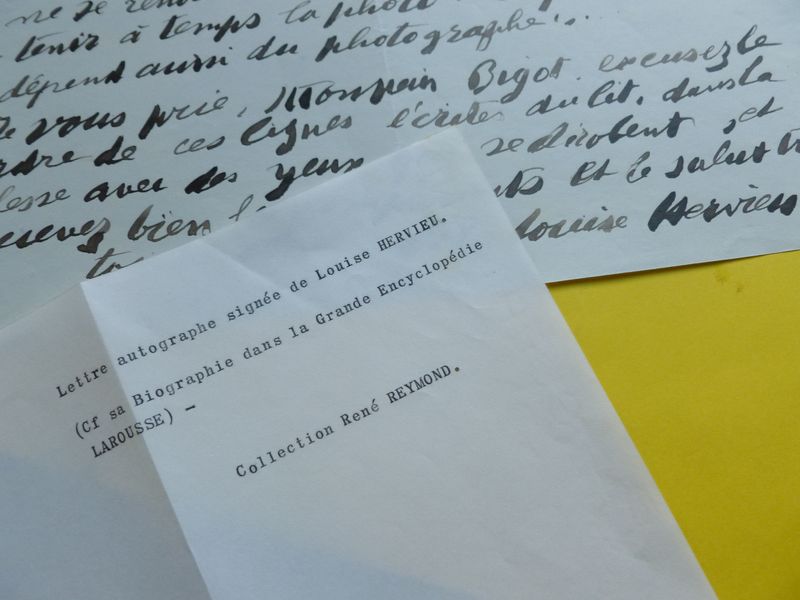 ne se
tenir à temps la photo
dépend aussi du photographe...
vous prie, Bigot. excusez le
de ces lignes écrites du lit, dans la
avec des yeux se dérobent, et
bien et le salut
Louise Hervieu
Lettre autographe signée de Louise HERVIEU.
(Cf sa Biographie dans la Grande Encyclopédie
LAROUSSE) -
Collection René REYMOND.